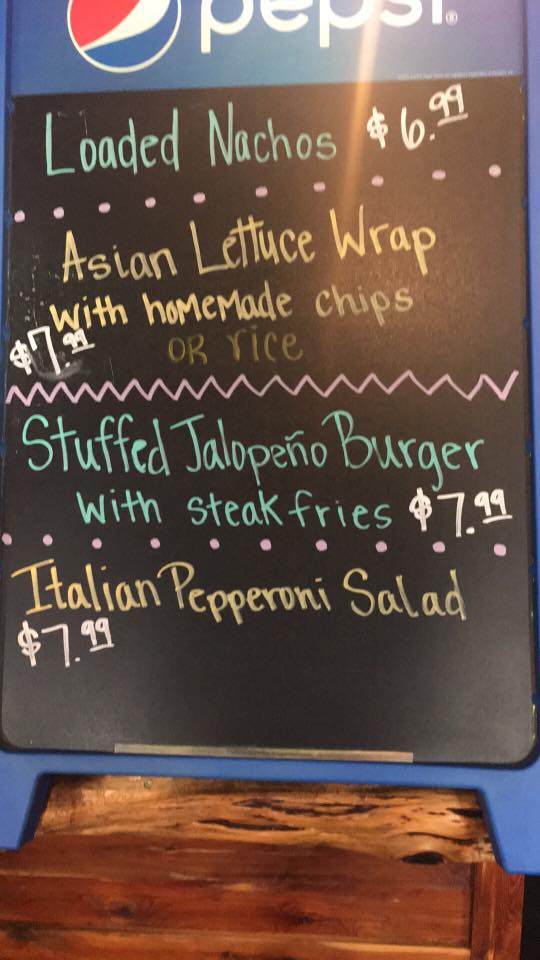 pepsi®
Loaded Nachos $6.99
Asian Lettuce Wrap
with homemade chips
$7.99 OR rice
Stuffed Jalapeño Burger
with steak fries $7.99
Italian Pepperoni Salad
$7.99